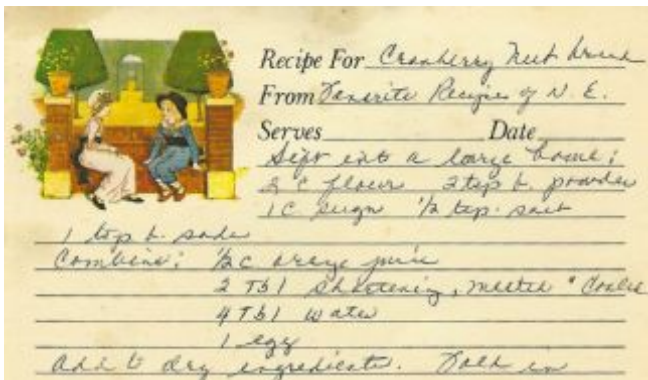 Recipe For Cranberry Nut Bread
From Favorite Recipes of N. E.
Serves Date
Sift into a large bowl;
2 c flour 2 tsp b. powder
1 c sugar ½ tsp. salt
1 tsp b. soda
Combine; ½ c orange juice
2 Tbl shortening, melted & cooled
4 Tbl water
1 egg
add to dry ingredients. Fold in